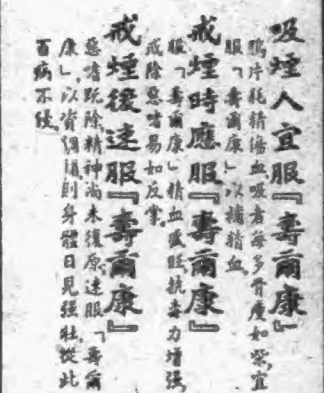 吸煙人宜服『壽爾康』
鴉片耗精濇血吸者每多骨瘦如柴宜
服「壽爾康」以補精血
戒煙時應服『壽爾康』
服「壽爾康」精血盛旺抗毒力增强
戒除惡嗜易如反掌
戒煙後速服『壽爾康』
惡嗜旣除精神尚未復原速服「壽爾
康」以資調攝則身體日見强壯從此
百病不侵